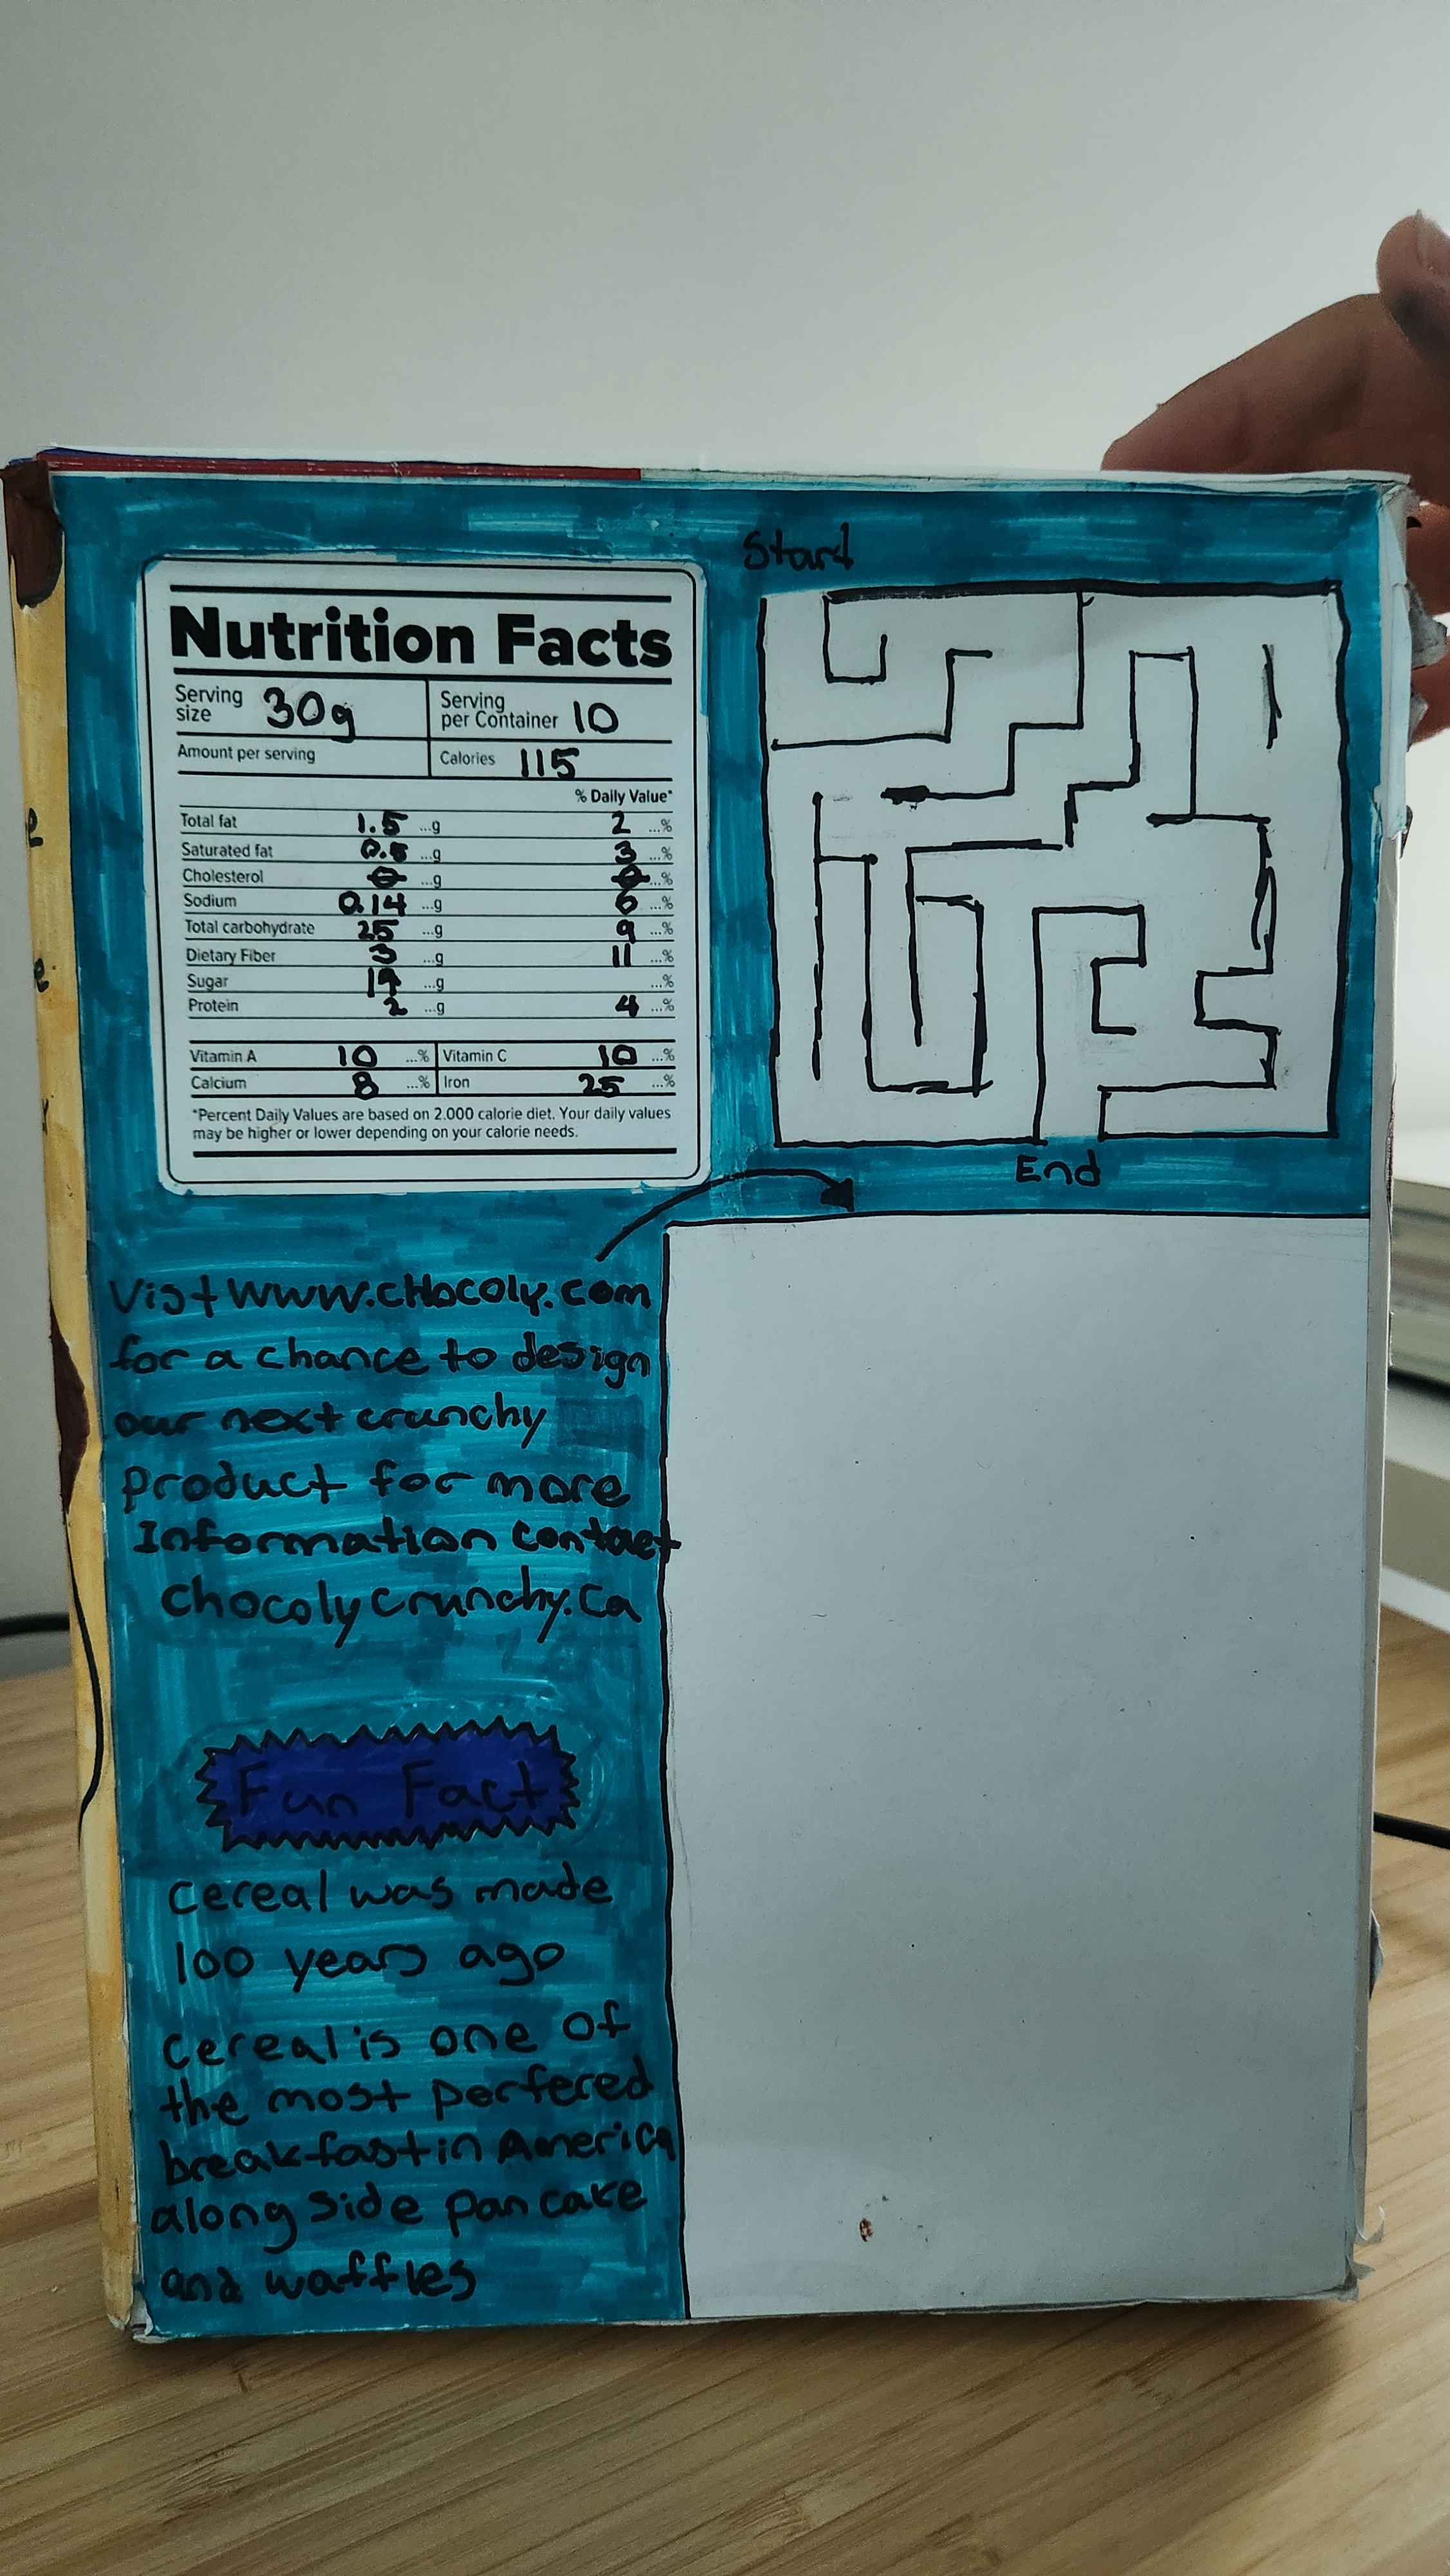 Nutrition Facts
Serving size 30g
Serving per Container 10
Amount per serving
Calories 115
% Daily Value*
Total fat 1.5 ...g 2 ...%
Saturated fat 0.5 ...g 3 ...%
Cholesterol 0 ...g 0 ...%
Sodium 0.14 ...g 6 ...%
Total carbohydrate 25 ...g 9 ...%
Dietary Fiber 3 ...g 11 ...%
Sugar ...g ...%
Protein 2 ...g 4 ...%
Vitamin A 10 ...% Vitamin C 10 ...%
Calcium 8 ...% Iron 25 ...%
*Percent Daily Values are based on 2.000 calorie diet. Your daily values
may be higher or lower depending on your calorie needs.
Start
End
Vist www.cHocoly.com
for a chance to design
our next crunchy
product for more
Information contact
chocolycrunchy.ca
Fun Fact
cereal was made
100 years ago
cereal is one of
the most perfered
breakfast in America
along side pan cake
and waffles